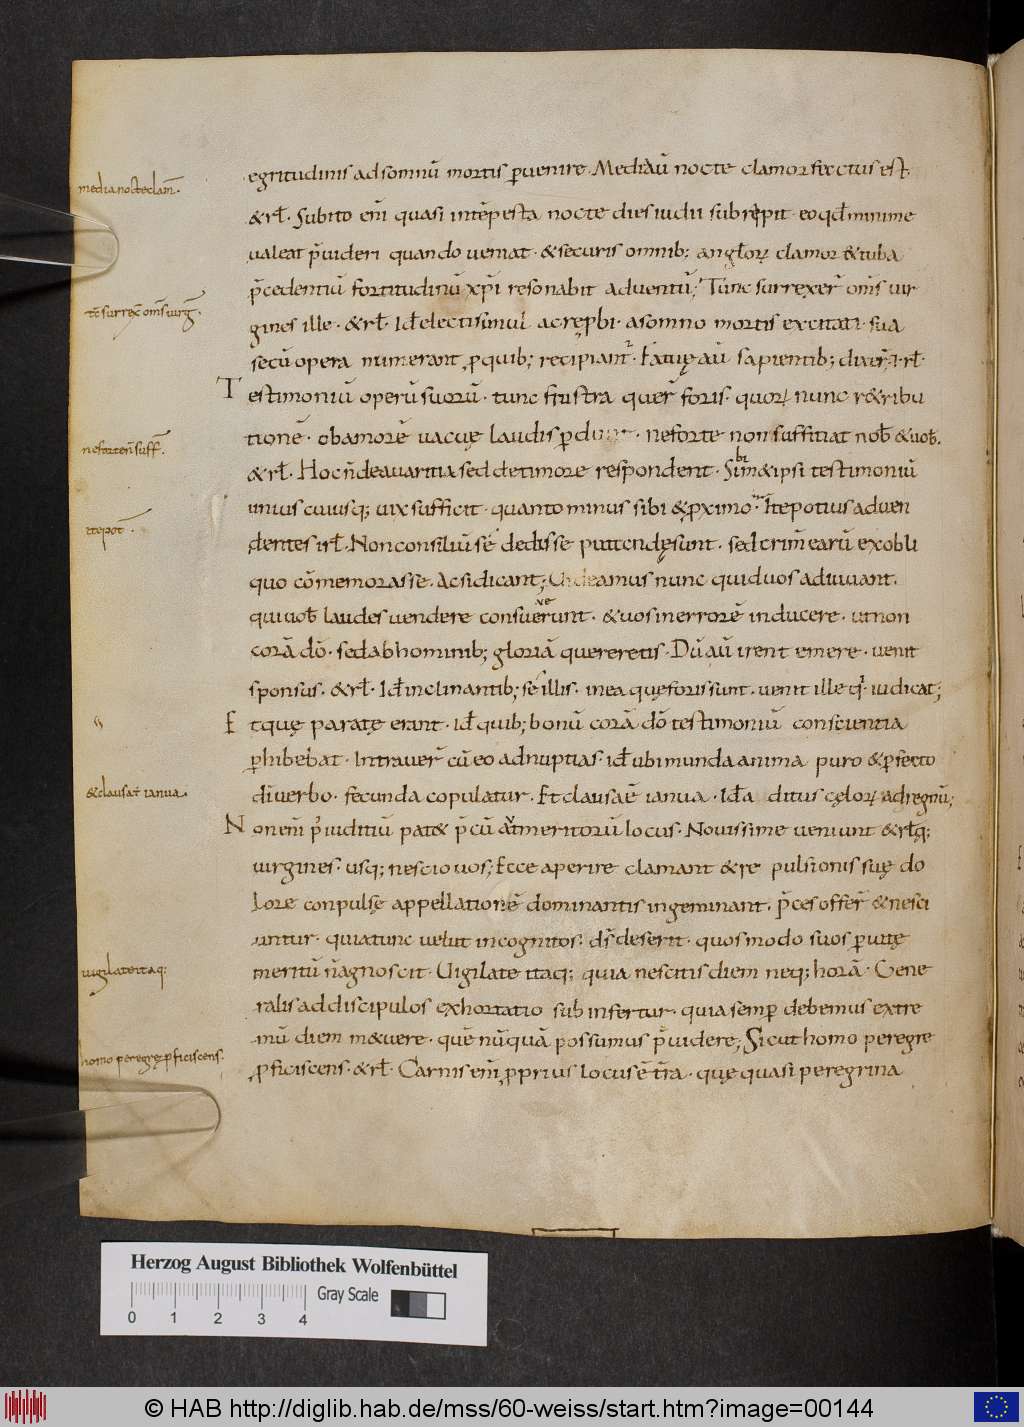 egritudinis ad somnū mortis ꝑvenire. Mediaū nocte clamor factus est
medianocteclam̄.
& rƚ. Subito em̄ quasi intēpesta nocte dies iudii subrepit. eo qđ minime
valeat p̄videri quando veniat. & securis omnib; angƚoꝝ clamor & tuba
p̄cedentiū fortitudinū xp̄i resonabit adventū; Tunc surrexer̄ om̄s vir
tc̄ surrex̄ om̄s virḡ.
gines ille. & rƚ. Id electi simul ac repbi. a somno mortis excitati. sua
secū opera numerant, ꝓ quib; recipiant. Fatuę aū sapientib; dixer̄. & rƚ.
Testimoniū operū suorū. tunc frustra quer̄ foris. quoꝝ nunc r&ribu
tionē. ob amorē vacuę laudis ꝑdunt. ne forte non suffitiat nob̄ & vob̄.
ne forte n̄ suff̄.
& rƚ. Hoc n̄ de avaritia sed de timore respondent. Sibim& ipsi testimoniū
unius cuiusq; vix sufficit. quanto minus sibi & ꝓximo. Ite potius ad ven
ite pot̄.
dentes & rƚ. Non consiliū sē dedisse putendę sunt. sed crim̄ earū ex obli
quo cōmemorasse. Ac si dicant; Videamus nunc qui duos adiuvant.
qui vob̄ laudes vendere consueverunt. & vos in errorē inducere. ut non
corā dō. sed ab hominib; gloriā quereretis. Dū aū irent emere. venit
sponsus. & rƚ. Id inclinantib; sē illis. in ea quę foris sunt. venit ille q̄ iudicat;
Et quę paratę erant. id quib; bonū corā dō testimoniū conscientia
ꝑhibebat. Intraver̄ cū eo ad nuptias. id ubi munda anima puro & ꝑfecto
dī verbo. fecunda copulatur. Et clausa ē ianua. Id a ditus cęloꝝ ad regnū;
& clausa ē ianua.
Non em̄ p̄ iuditiū pat& p̄cū at̄ meritorū locus. Novissime veniunt & rƚq;
virgines. usq; nescio vos; Ecce aperire clamant & re pulsionis suę do
lore conpulsę appellationē dominantis ingeminant. p̄ces offer̄ & nesci
untur. quia tunc velut incognitos. ds̄ deserit. quos modo suos ꝑ vitę
meritū n̄ agnoscit. Vigilate itaq; quia nescitis diem neq; horā. Gene
vigilate itaq;
ralis ad discipulos exhortatio subinfertur. quia semꝑ debemus extre
mū diem m&uere. quē nūquā possumus p̄videre; Sicut homo peregre
homo peregrę ꝓficiscens.
ꝓficiscens. & rƚ. Carnis em̄ ꝓprius locus ē tr̄a. quę quasi peregrina
Herzog August Bibliothek Wolfenbüttel
Gray Scale
0 1 2 3 4
© HAB http://diglib.hab.de/mss/60-weiss/start.htm?image=00144